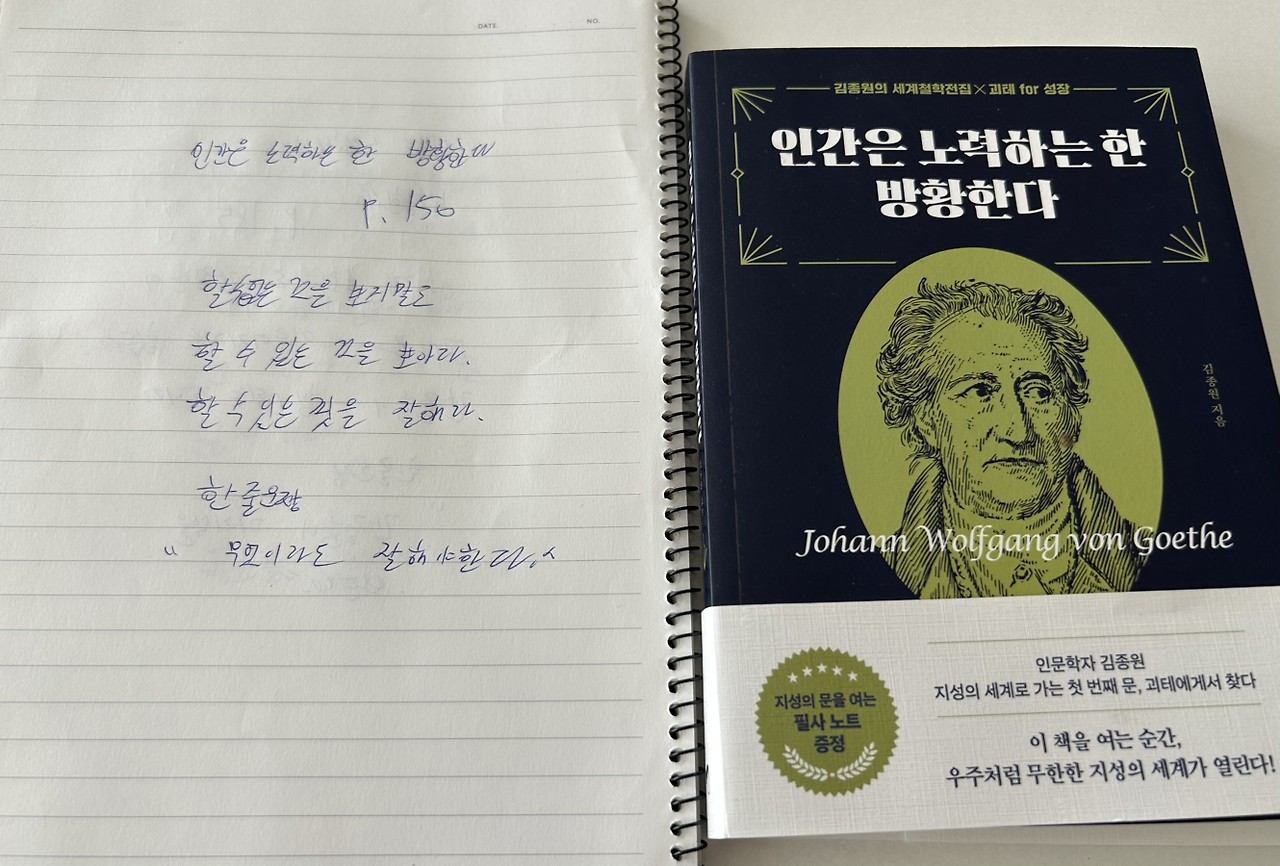 DATE. NO.
인간은 노력하는 한 방황한다
P. 150
할 수 없는 것을 보지말고
할 수 있는 것을 보아라.
할 수 있는 것을 잘해라.
한 줄문장
" 무엇이라도 잘해야한다. "
김종원의 세계철학전집×괴테 for 성장
인간은 노력하는 한
방황한다
김종원 지음
Johann Wolfgang von Goethe
지성의 문을 여는
필사 노트
증정
인문학자 김종원
지성의 세계로 가는 첫 번째 문, 괴테에게서 찾다
이 책을 여는 순간,
우주처럼 무한한 지성의 세계가 열린다!